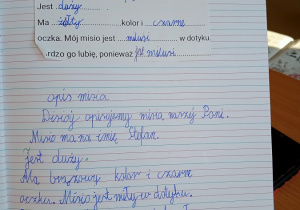 Jest duży
Ma żółty kolor i czarne
oczka. Mój misio jest milusi w dotyku
rdzo go lubię, ponieważ jest milusi
opis misia
Dzisiaj opisujemy misia naszej Pani.
Misio ma na imię Stefan.
Jest duży.
Ma brązowy kolor i czarne
oczka. Misio jest miły w dotyku.